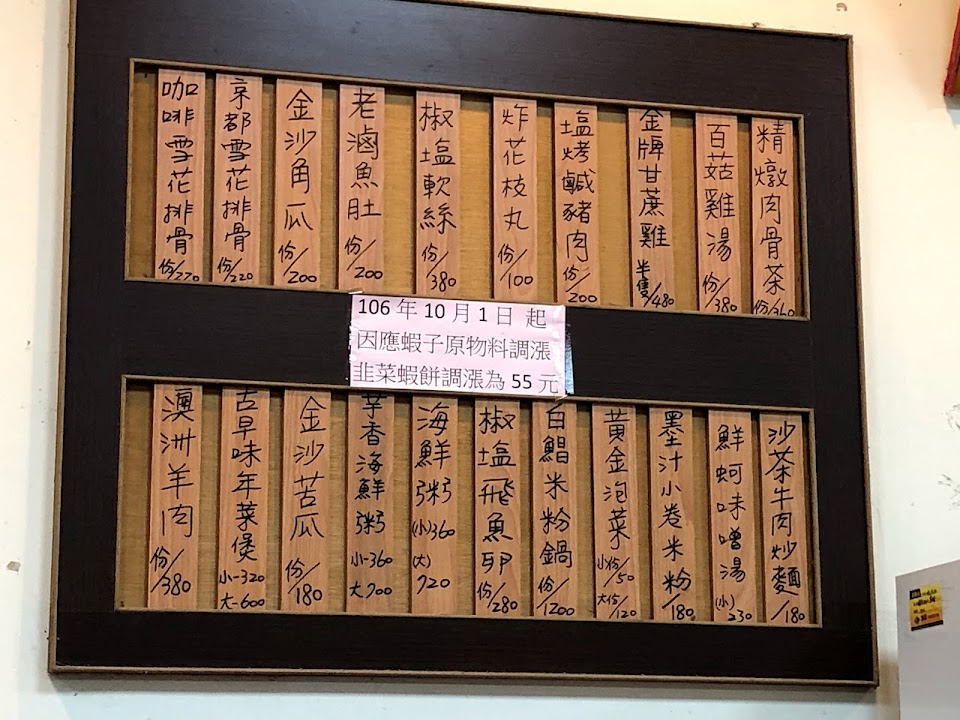 精燉肉骨茶 份/360
百菇雞湯 份/380
金牌甘蔗雞 半隻/480
塩烤鹹豬肉 份/200
炸花枝丸 份/100
椒塩軟絲 份/380
老滷魚肚 份/200
金沙角瓜 份/200
京都雪花排骨 份/220
咖啡雪花排骨
106 年 10 月 1 日 起
因應蝦子原物料調漲
韭菜蝦餅調漲為 55 元
沙茶牛肉炒麵 /180
鮮蚵味噌湯 (小)230
墨汁小卷米粉 /180
黃金泡菜 小份/50 大份/120
白鯧米粉鍋 份/1200
椒塩飛魚卵 份/280
海鮮粥 (小)360 (大)720
芋香海鮮粥 小-360 大700
金沙苦瓜 份/180
古早味年菜煲 小-320 大-600
澳洲羊肉 份/380